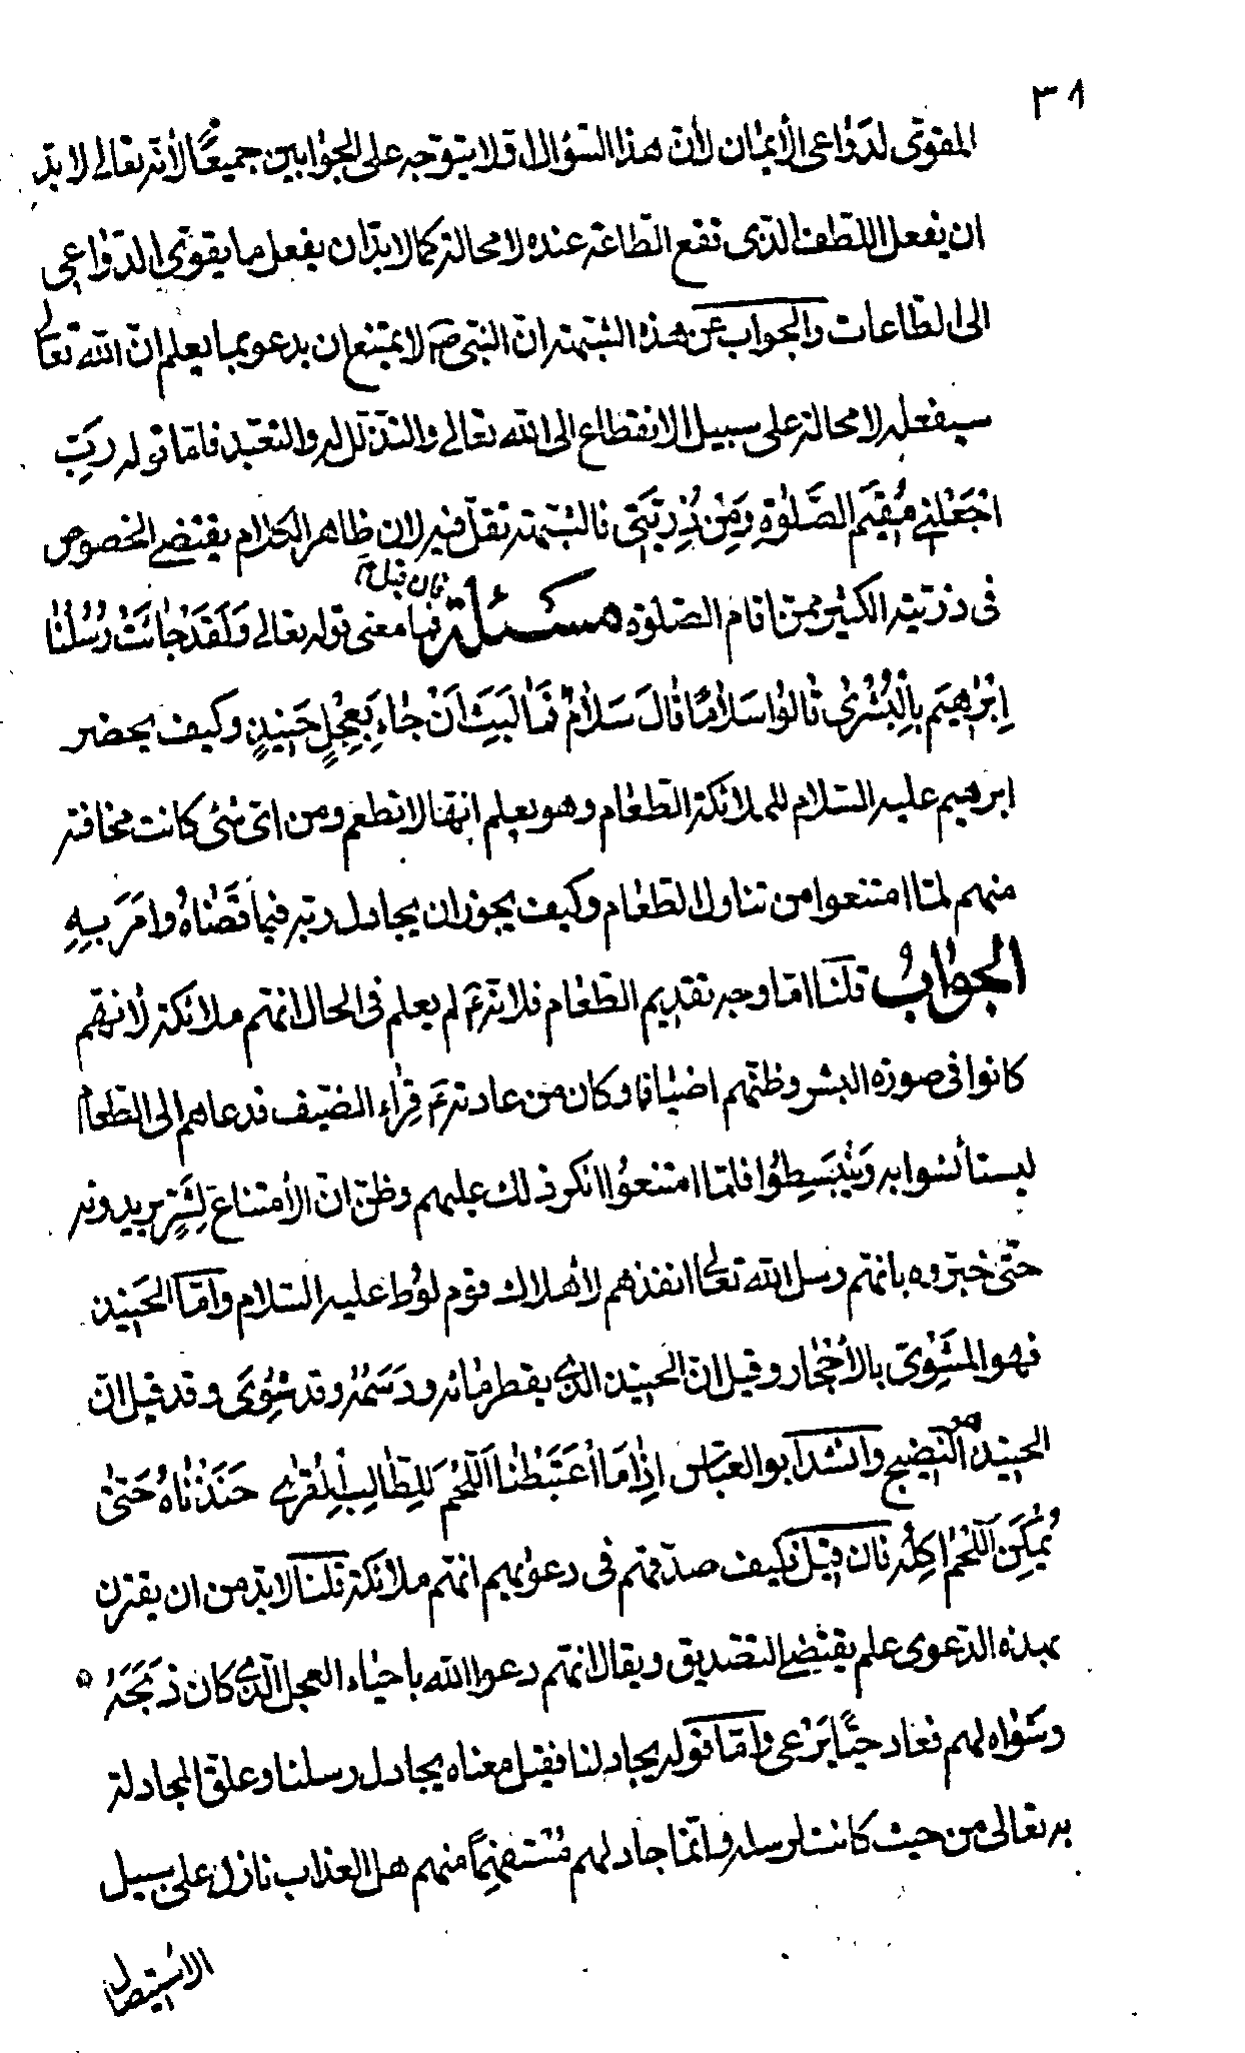 ٣٨
المقوّى لدواعى الأيمان لأنّ هذا السّؤال اوّلا يتوّجه على الجوابين جميعًا لأنّه تعالى لا بدّ
ان يفعل اللطف الذى تقع الطاعة عنده لا محالة كما لا بدّ ان يفعل ما يقوّى الدّواعى
الى الطاعات والجواب عن هذه الشّبهة انّ النبىّ ص لا يمتنع ان يدعو بما يعلم انّ الله تعالى
سيفعله لا محالة على سبيل الانقطاع الى الله تعالى والتذلّل له والتعبّد فامّا قوله رَبِّ
اجْعَلْنِى مُقِيمَ الصَّلٰوةِ وَمِنْ ذُرِّيَّتِى فالشّبهة تقلّ فيه لان ظاهر الكلام يقتضى الخصوص
فى ذرّيّته الكثير ممّن اقام الصّلوة مسئلة فان قيل فما معنى قوله تعالى وَلَقَدْ جٰائَتْ رُسُلُنٰا
اِبْرٰهِيمَ بِالْبُشْرٰى قٰالُوا سَلٰامًا قٰالَ سَلٰامٌ فَمٰا لَبِثَ اَنْ جٰاءَ بِعِجْلٍ حَنِيذٍ وكيف يحضر
ابرهيم عليه السّلام للملائكة الطّعام وهو يعلم انّها لا تطعم ومن اىّ شئ كانت مخافته
منهم لمّا امتنعوا من تناول الطّعام وكيف يجوز ان يجادل ربّه فيما قَضٰاهُ وامَرَ بِهِ
الجوابُ قلنا امّا وجه تقديم الطّعام فلانّه ع لم يعلم فى الحال انّهم ملائكة لأنّهم
كانوا فى صورة البشر وظنّهم اضيافا وكان من عادته ع قِراء الضّيف فدعاهم الى الطعام
ليستأنسوا به وَيَنْبَسِطُوا فلمّا امتنعُوا انكر ذلك عليهم وظنّ انّ الأمتناع لِشَرٍّ يريدونه
حتّى خبّروه بانّهم رسل الله تعالى انفذهم لأهلاك قوم لوُط عليه السّلام وامّا الحَنِيذ
فهو المَشْوِىّ بالأحْجٰار وقيل انّ الحنيذ الذى يقطر مٰائه ودَسَمُه وقد شُوِىَ وقد قيل انّ
الحنيذ هو النّضِيج وانشد ابو العبّاس اِذٰا مَا اعْتَبَطْنٰا اللَّحْمَ لِلطّٰالِبِ الْقُرٰى حَنَذْنٰاهُ حَتّٰى
يُمْكِنَ اللَّحْمَ اكِلُه فان قيل فكيف صدّقهم فى دعوٰيهم انّهم ملائكة قلنا لا بدّ من ان يقترن
بهذه الدّعوى علم يقتضى التصديق ويقال انّهم دعوا الله باحياء العجل الّذى كان ذَبَحَهُ
وشَوٰاه لهم فعاد حيًّا يَرْعى وامّا قوله يجادلنا فقيل معناه يجادل رسلنا وعلّق المجادلة
به تعالى من حيث كانت لرسله وانّما جادلهم مُسْتَفهِمًا منهم هل العذاب نازل على سبيل
الاستيصال